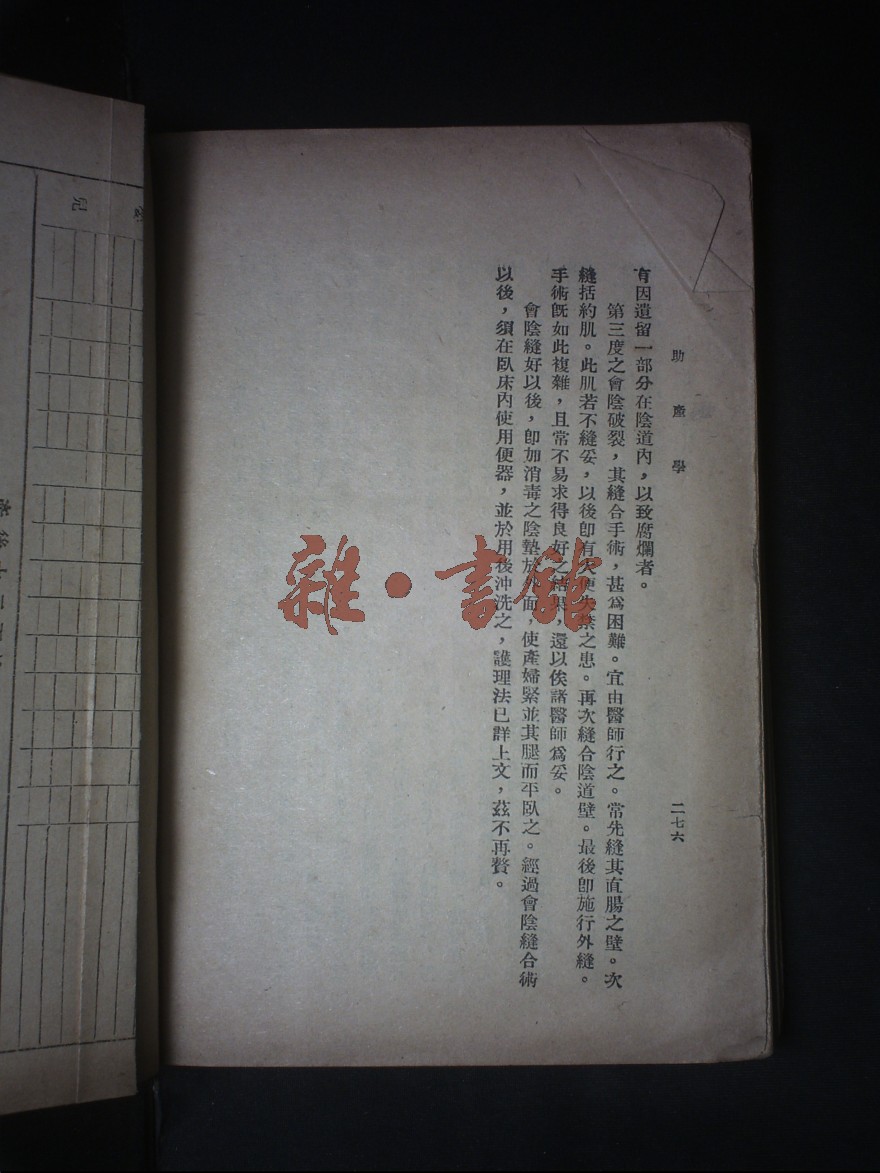 助產學
二七六
有因遺留一部分在陰道內，以致腐爛者。
第三度之會陰破裂，其縫合手術，甚爲困難。宜由醫師行之。常先縫其直腸之壁。次
縫括約肌。此肌若不縫妥，以後卽有大便失禁之患。再次縫合陰道壁。最後卽施行外縫。
手術旣如此複雜，且常不易求得良好之結果，還以俟諸醫師爲妥。
會陰縫好以後，卽加消毒之陰墊於外面，使產婦緊並其腿而平臥之。經過會陰縫合術
以後，須在臥床內使用便器，並於用後沖洗之，護理法已詳上文，茲不再贅。
雜·書館
兒